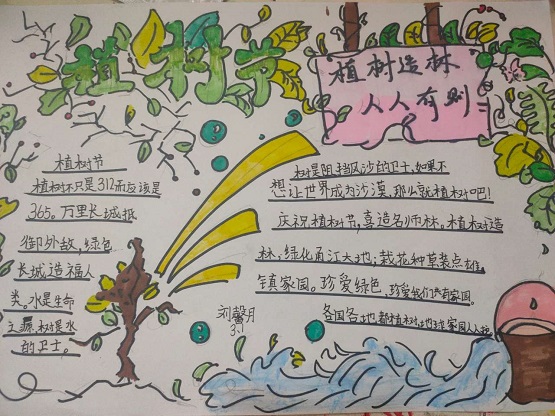 植树节
植树造林
人人有则
植树节
植树不只是312而应该是
365。万里长城抵
御外敌,绿色
长城造福人
类。水是生命
之源,树是水
的卫士。
树是阻挡风沙的卫士,如果不
想让世界成为沙漠,那么就植树吧!
庆祝植树节,喜造名师林。植树造
林,绿化两江大地;栽花种草装点雄
镇家园。珍爱绿色,珍爱我们共有家园。
各国各地,都植树
刘馨月
3.1